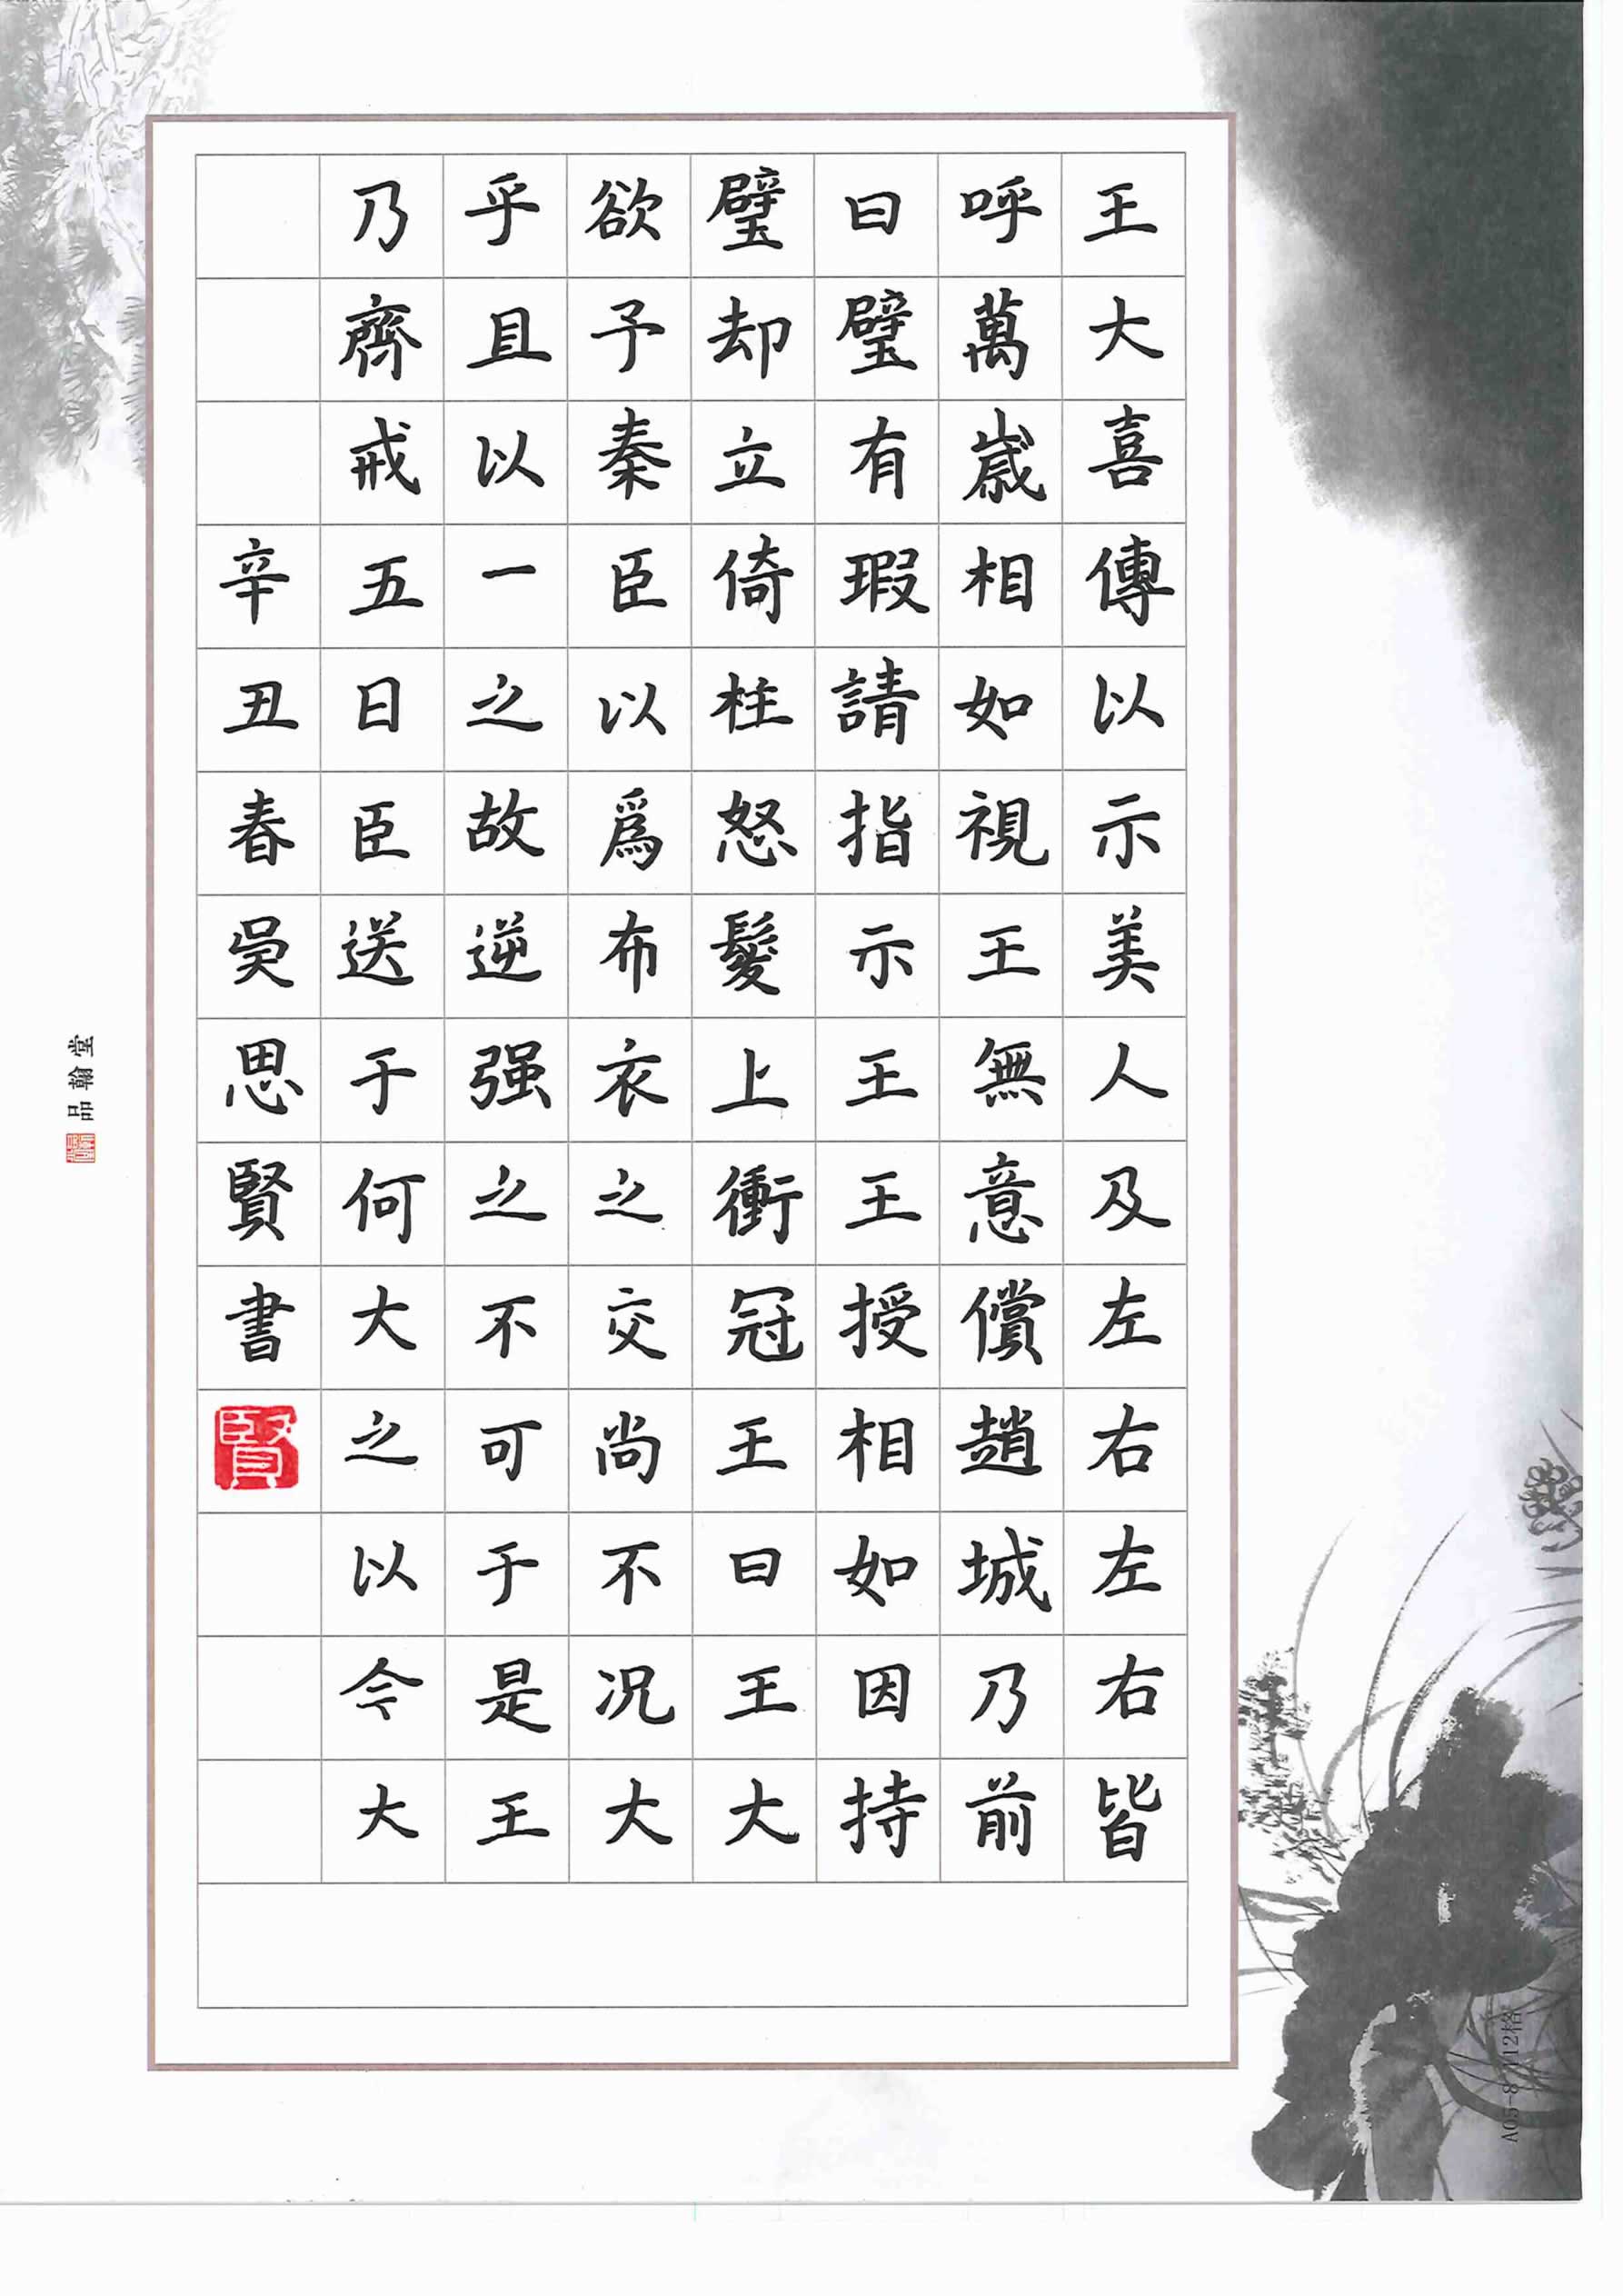 王大喜傳以示美人及左右左右皆
呼萬嵗相如視王無意償趙城乃前
曰璧有瑕請指示王王授相如因持
璧却立倚柱怒髮上衝冠王曰王大
欲予秦臣以爲布衣之交尚不况大
乎且以一之故逆强之不可于是王
乃齊戒五日臣送于何大之以今大
辛丑春吳思賢書
賢
品翰堂
A05-8 112格